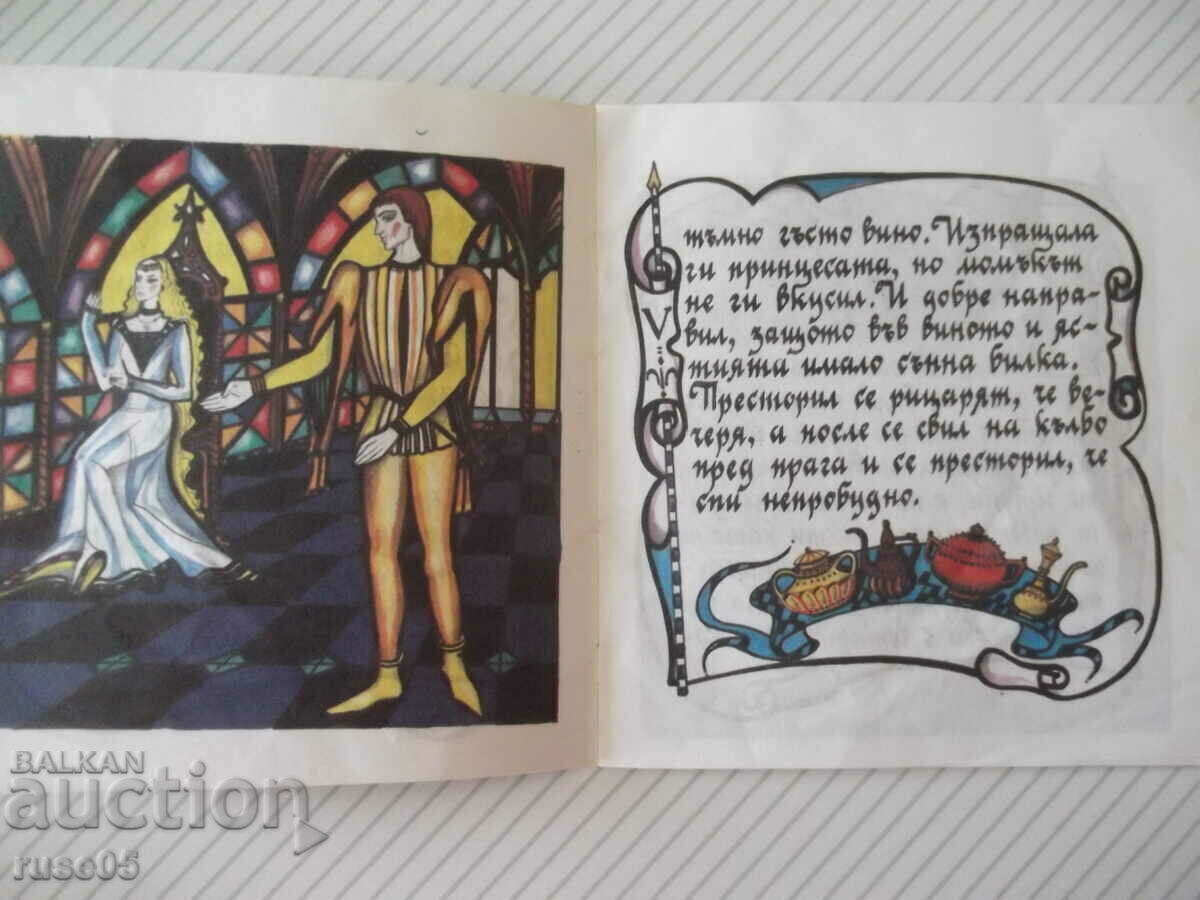 тъмно гъсто вино. Изпращала
ги принцесата, но момъкът
не ги вкусил. И добре напра-
вил, защото във виното и яс-
тията имало сънна билка.
Престорил се рицарят, че ве-
черя, а после се свил на кълбо
пред прага и се престорил, че
спи непробудно.
BALKAN
auction
ruse05